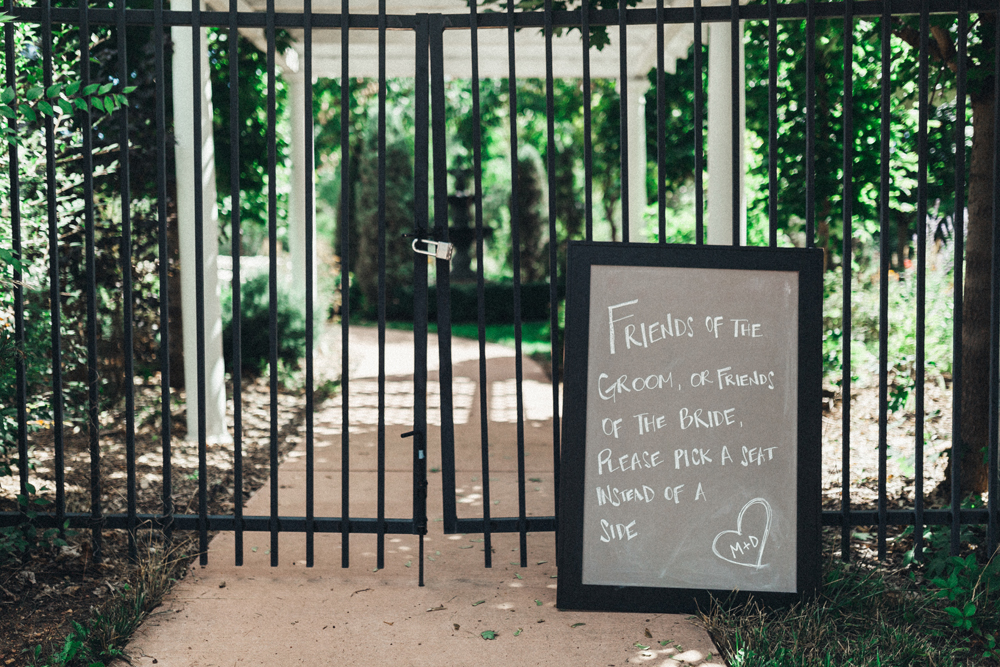 FRIENDS OF THE
GROOM, OR FRIENDS
OF THE BRIDE,
PLEASE PICK A SEAT
INSTEAD OF A
SIDE
M+D